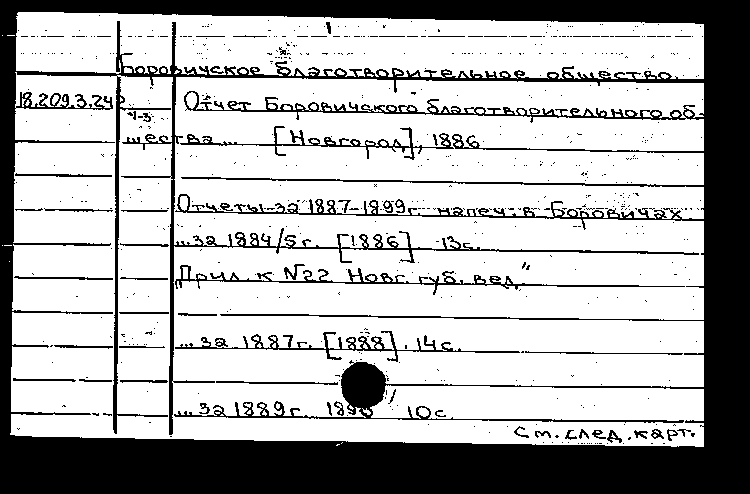 Боровичское благотворительное общество.
18.209.3.242 Отчет Боровичского благотворительного об-
4-3
щества... [Новгород], 1886
Отчеты за 1887-1899г. напеч. в Боровичах.
...за 1884/5г. [1886] 13с.
"Прил. к №22 Новг. губ. вед."
...за 1887г. [1888]. 14с.
...за 1889г. 1890 10с.
См. след. карт.